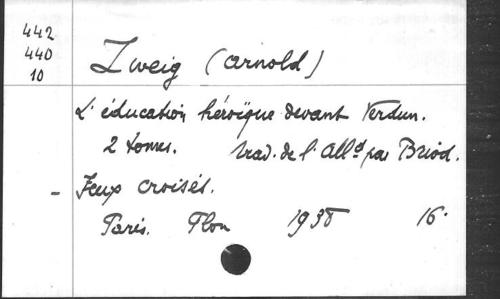 442
440
10
Zweig (Arnold)
L'éducation héroïque devant Verdun.
2 tomes. trad. de l'Alld par Briod.
- Feux croisés.
Paris. Plon 1938 16.